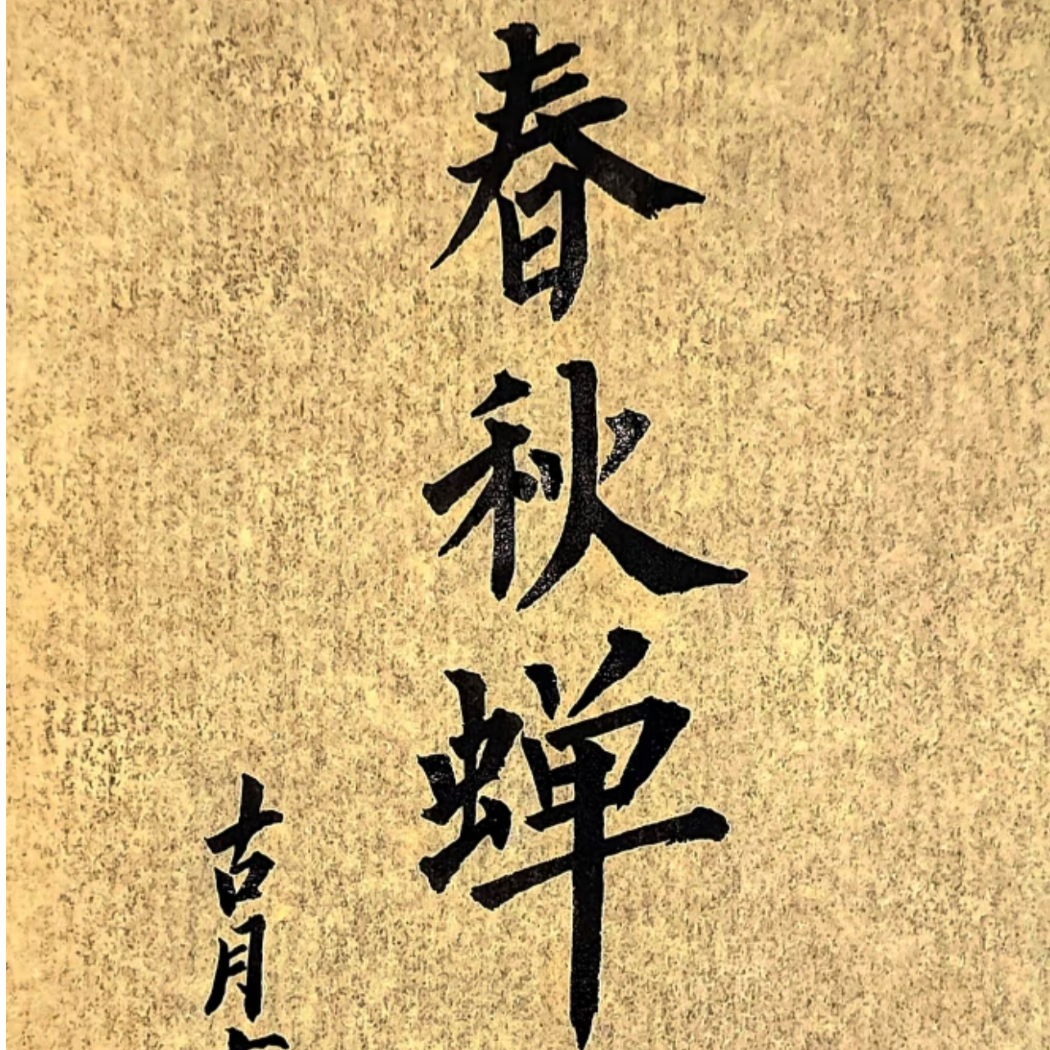 春秋蝉
古月